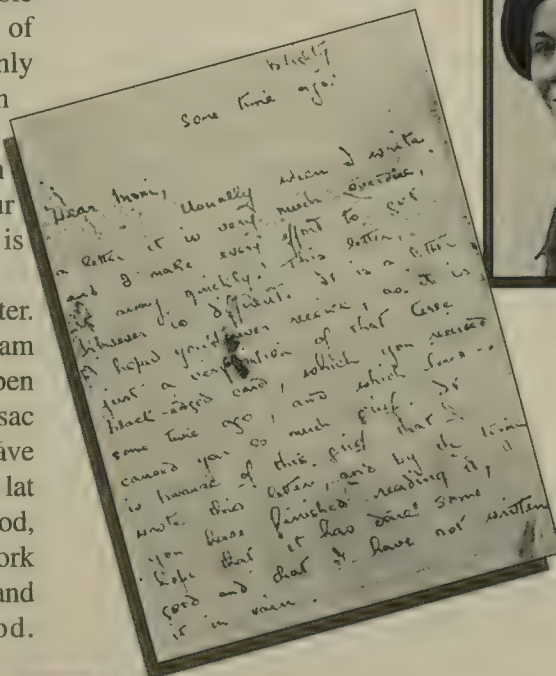 of
nly
n
ur
is
ter.
am
pen
sac
ave
lat
od,
ork
and
od.
Blighty
Some time ago.
Dear Mom, Usually when I write
a letter it is very much overdue,
and I make every effort to get
it away quickly. This letter,
however is different. It is a letter
I hoped you'd never receive, as it is
just a verification of that terse
black-edged card, which you received
some time ago, and which has
caused you so much grief. It
is because of this grief that I
wrote this letter, and by the time
you have finished reading it, I
hope that it has done some
good and that I have not written
it in vain.